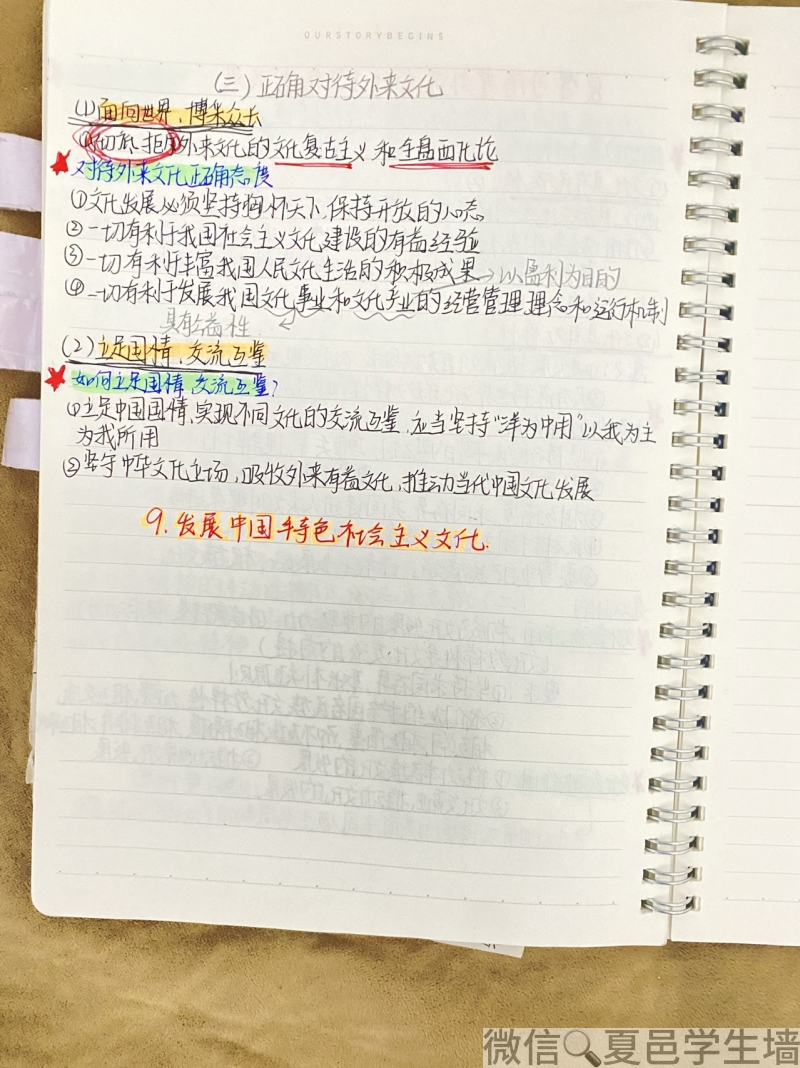 OURSTORYBEGINS
(三)正确对待外来文化
(1)面向世界、博采众长
①切忌拒斥外来文化的文化复古主义和全盘西化论
对待外来文化正确态度
①文化发展必须坚持胸怀天下,保持开放的心态
②一切有利于我国社会主义文化建设的有益经验
③一切有利于丰富我国人民文化生活的积极成果
以盈利为目的
④一切有利于发展我国文化事业和文化产业的经营管理理念和运行机制
具有公益性
(2)立足国情、交流互鉴
如何立足国情、交流互鉴?
①立足中国国情,实现不同文化的交流互鉴,应当坚持"洋为中用"以我为主
为我所用
②坚守中华文化立场,吸收外来有益文化,推动当代中国文化发展
9.发展中国特色社会主义文化.
微信 夏邑学生墙